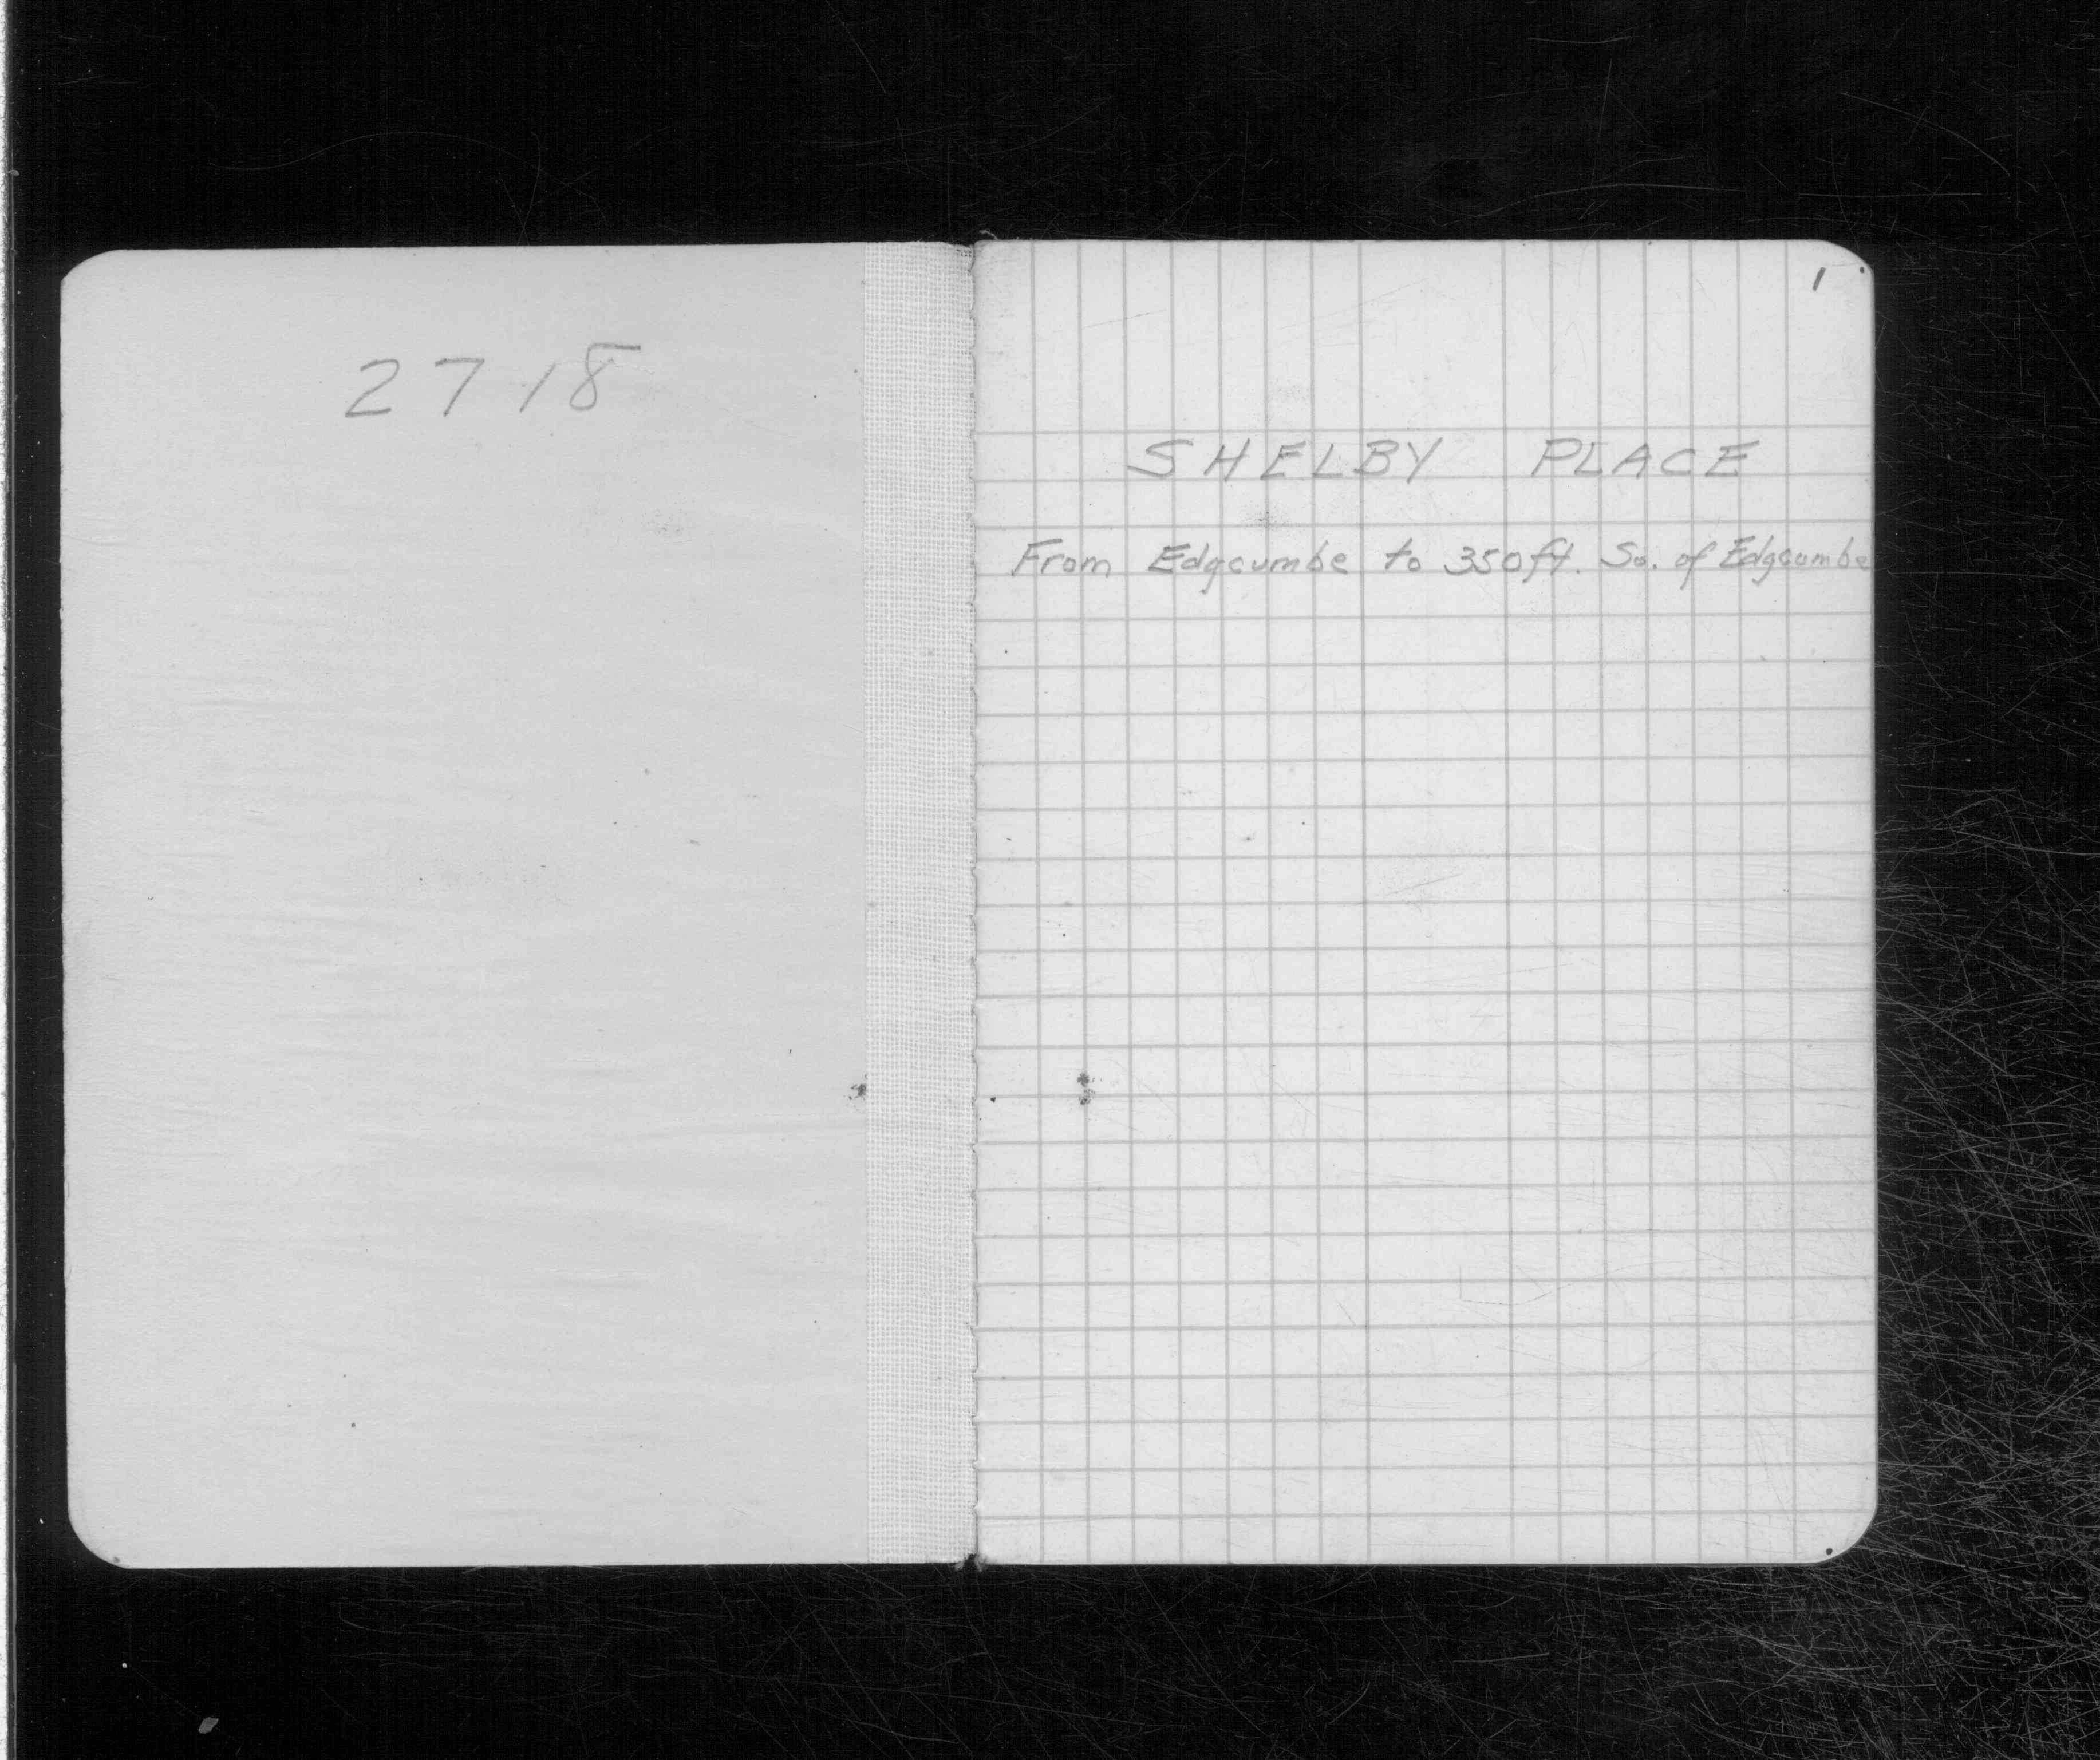 2718
1
SHELBY PLACE
From Edgcumbe to 350ft. So. of Edgcumbe